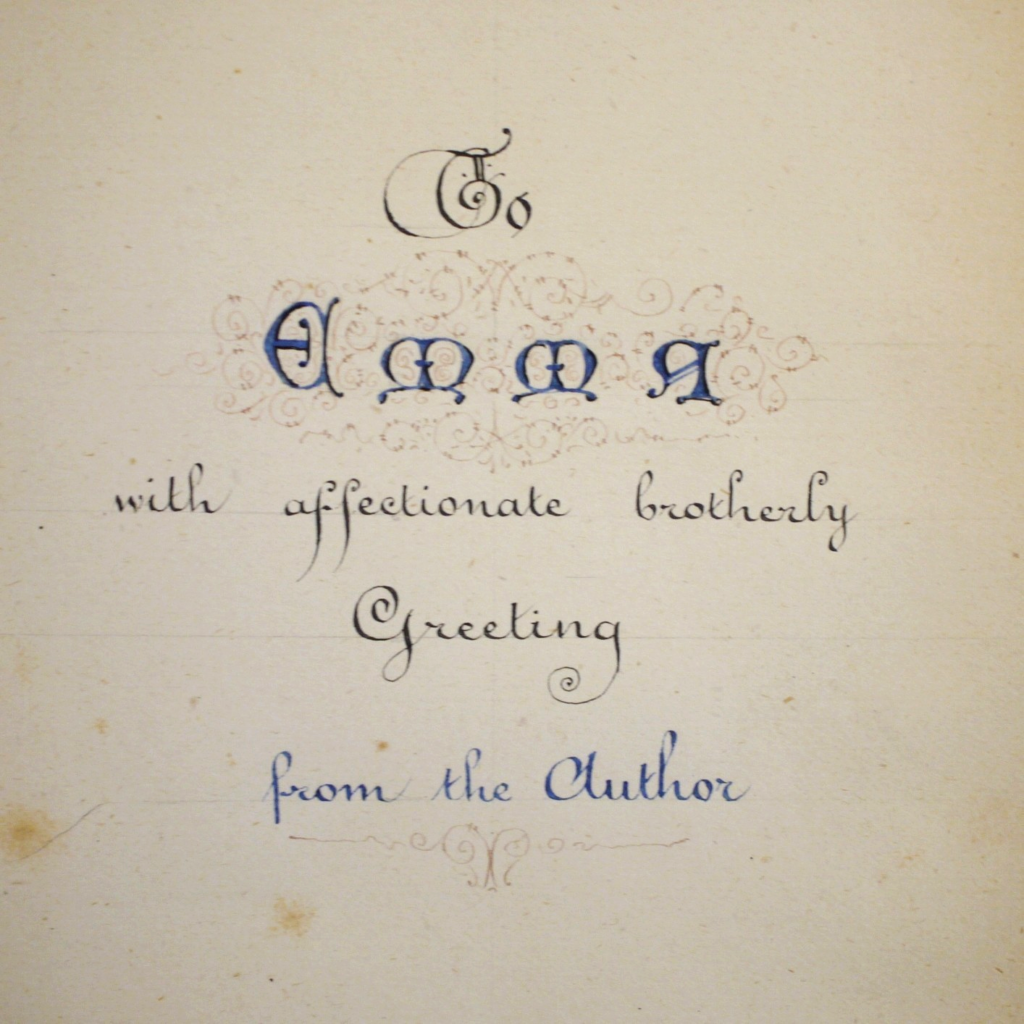 To
Emma
with affectionate brotherly
Greeting
from the Author